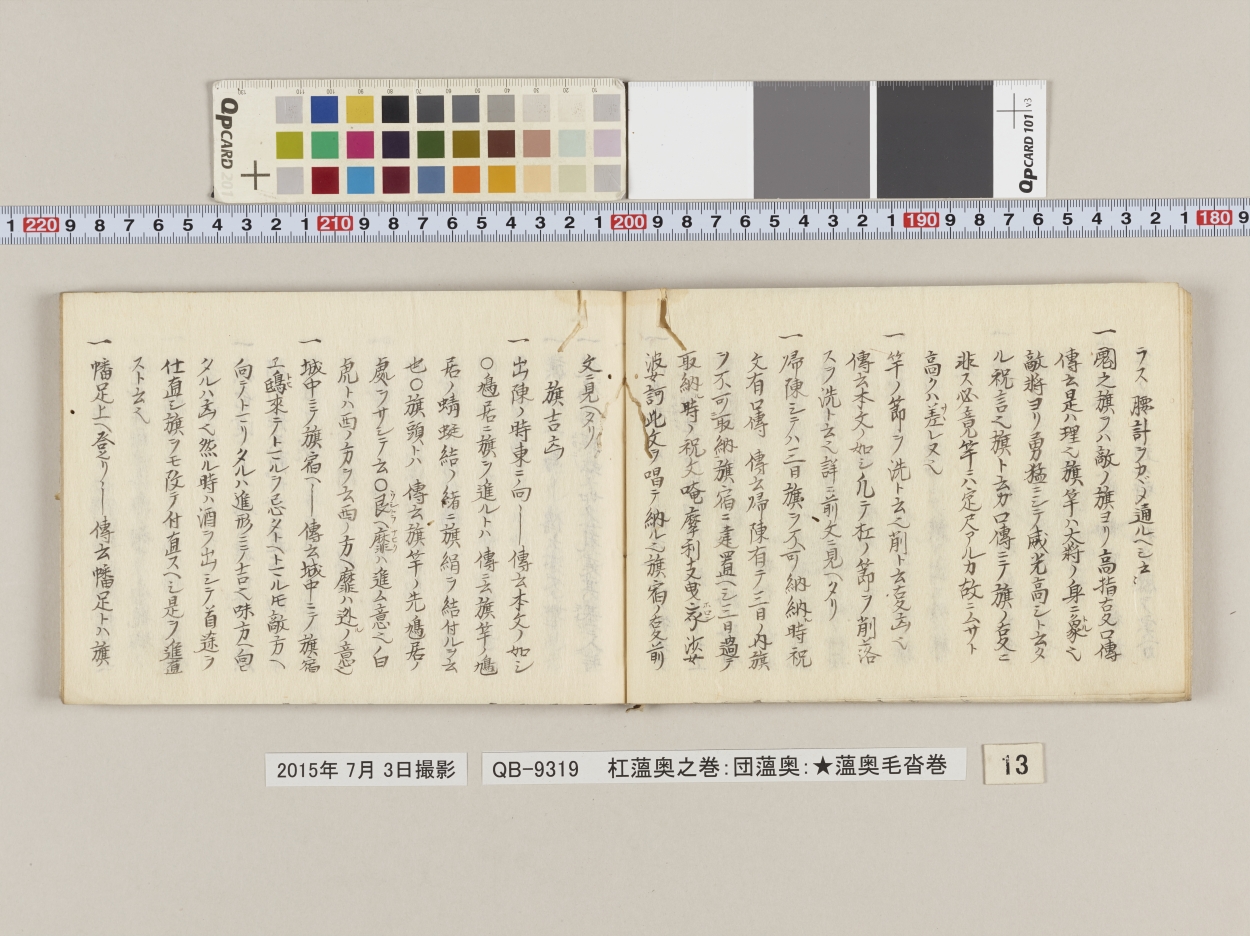 QPCARD 201
QPCARD 101 v3
1 220 9 8 7 6 5 4 3 2 1 210 9 8 7 6 5 4 3 2 1 200 9 8 7 6 5 4 3 2 1 190 9 8 7 6 5 4 3 2 1 180 9
ラス 腰計ヲカヾメ通ルヘシ云
一 之旗ヲハ敵ノ旗ヨリ高指 口傳
傳云是ハ理也旗竿ハ大将ノ身ニ象也
敵将ヨリ勇猛ニシテ威光高シト云タ
ル祝言也旗ト云カ口傳ニテ旗ノ ニ
非ス必竟竿ニハ定尺アルカ故ニムサト
高クハ差レヌ也
一 竿ノ節ヲ洗ト云也削ト云 也
傳云本文ノ如シ凢テ杠ノ節ヲ削洛
スヲ洗ト云也詳ニ前文ニ見ヘタリ
一 帰陳シテハ三日旗ヲ不可納納ル時祝
文有口傳 傳云帰陳有テ三日ノ内旗
ヲ不可取納旗宿ニ建置ヘシ三日過テ
取納ル時ノ祝文唵摩利支曳
波 訶此文ヲ唱テ納ル也旗宿ノ 前
文ニ見ヘタリ
旗吉凶
一 出陳ノ時東ニ向ー 傳云本文ノ如シ
〇鳩居ニ旗ヲ進ルトハ 傳云旗竿ノ鳩
居ノ蜻蜓結ノ緒ニ旗絹ヲ結付ルヲ云
也〇旗頭トハ 傳云旗竿ノ先鳩居ノ
處ヲサシテ云〇艮ヘ靡ハ進ム意也白
虎トハ西ノ方ヲ云西ノ方ヘ靡ハ迯ルノ意也
一 城中ニテノ旗宿ヘー 傳云城中ニテ旗宿
エ鴟來テトマルヲ忌タトヘトマルモ敵方ヘ
向テトマリタルハ進形ニテ吉也味方ヘ向ヒ
タルハ凶也然ル時ハ酒ヲ出シテ首途ヲ
仕直シ旗ヲモ改テ付直スヘシ是ヲ進直
スト云也
一 幡足上ヘ登リー 傳云幡足トハ旗ノ
2015年 7月 3日撮影
QB-9319 杠薀奥之巻：団薀奥：★薀奥毛沓巻
13